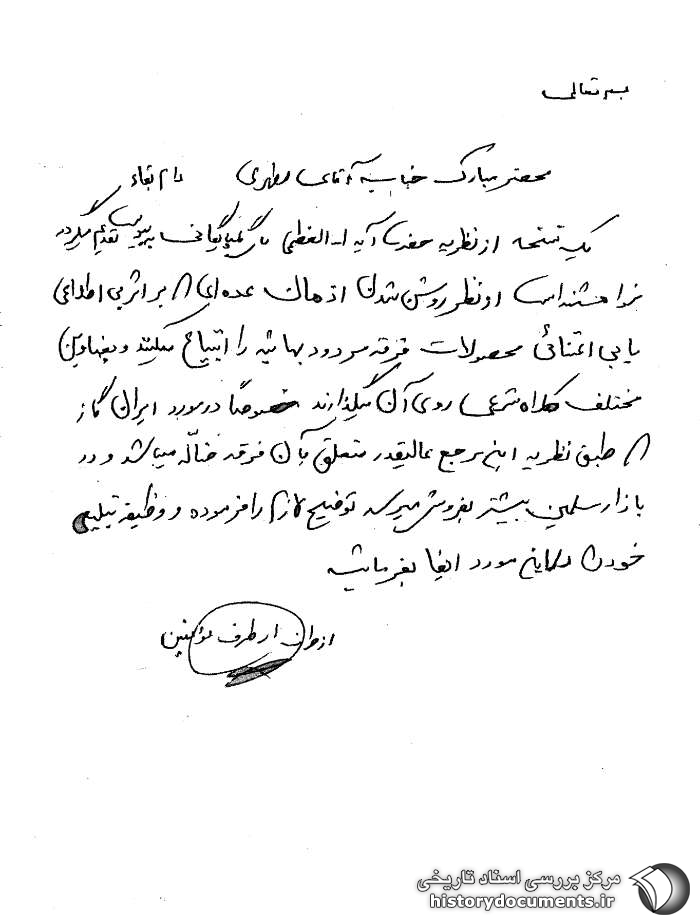 بسمه تعالی
محضر مبارک جناب آقای مطهری دام بقاه
یک نسخه از نظریه حضرت آیه ا… العظمی گلپایگانی بپیوست تقدیم میگردد
از نظر روشن شدن اذهان عده‌ای که بر اثر بی اطلاعی
یا بی اعتنائی محصولات فرقه مردود بهائیه را ابتیاع میکنند و بعناوین
مختلف کلاه شرعی روی آن میگذارند خصوصاً در مورد ایران گاز
که طبق نظریه این مرجع عالیقدر متعلق بآن فرقه ضالّه میباشد و در
بازار مسلمین بیشتر بفروش میرسد توضیح لازم را فرموده و وظیفه تبلیغی
خود را در این مورد ایفا بفرمائید
از طرف مؤمنین
مرکز بررسی اسناد تاریخی
historydocuments.ir